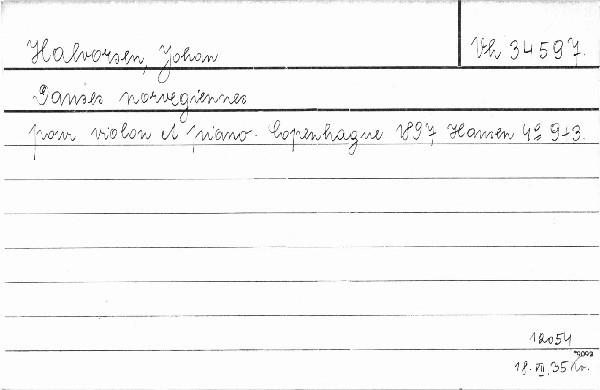 Halvorsen, Johan
Vh 34597.
Danses norvegiennes
pour violon et piano. Copenhague 1897, Hansen 4º 9+3.
12054
18. VII. 35